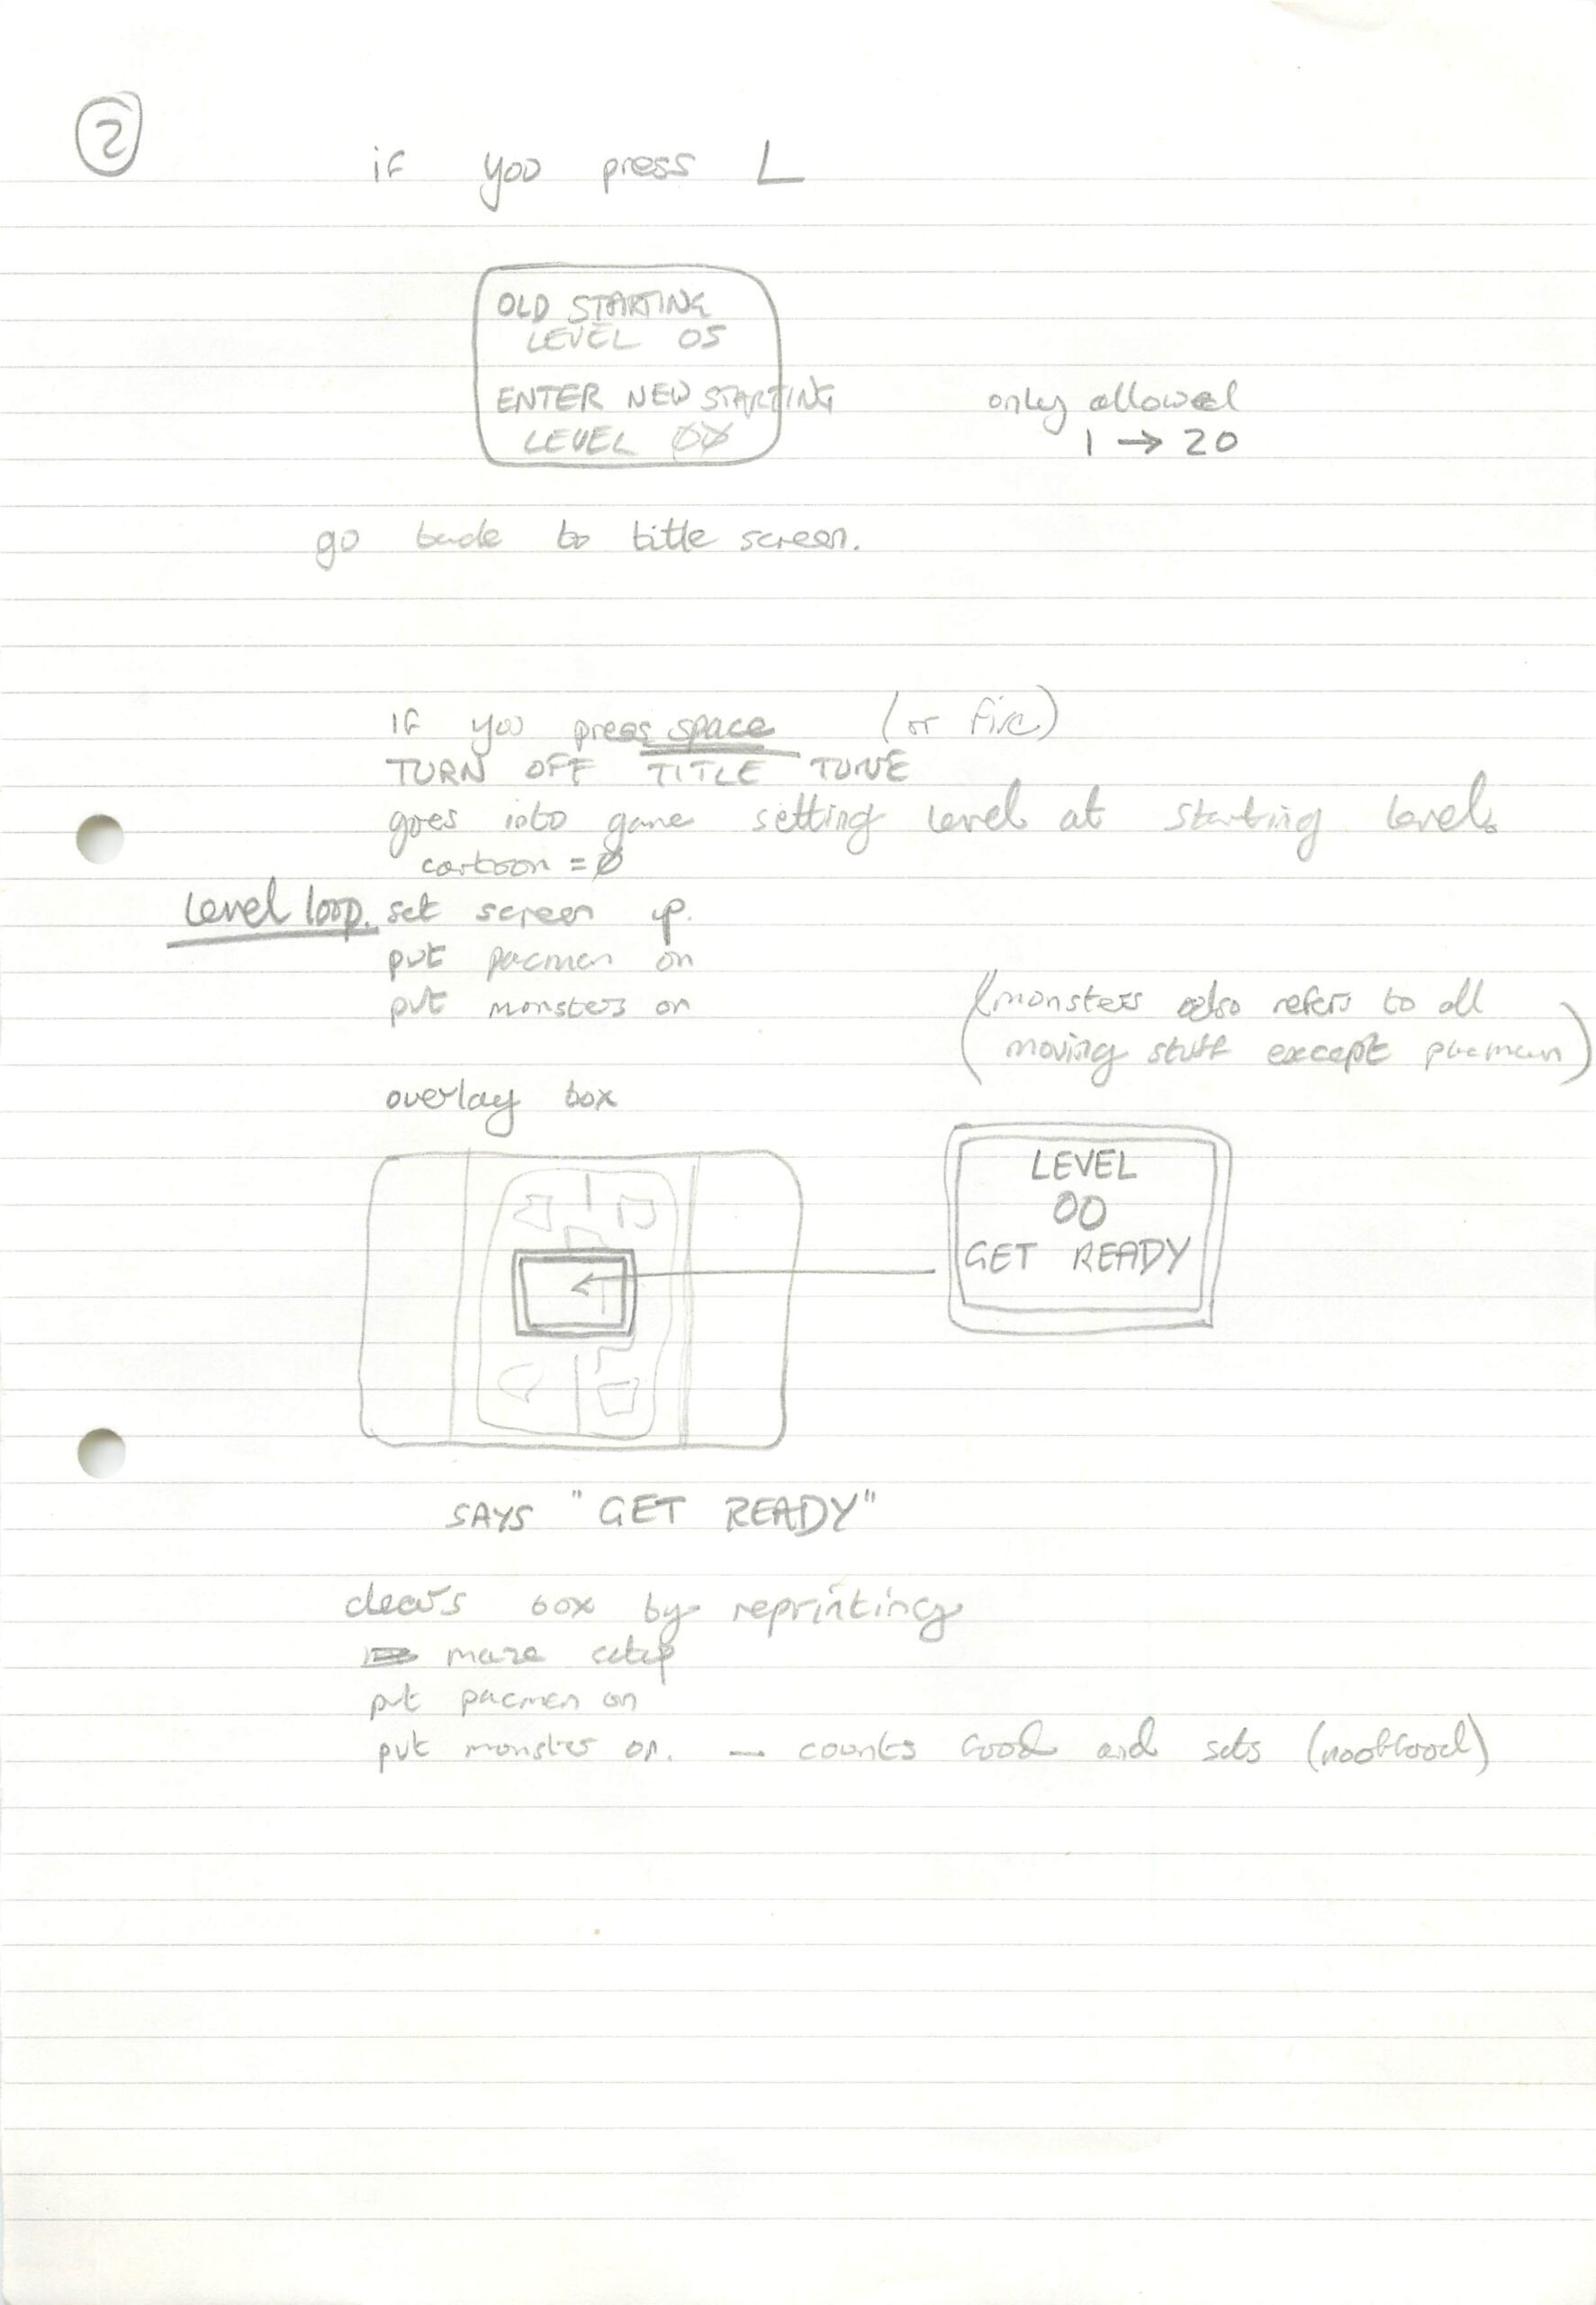 2
if you press L
OLD STARTING
LEVEL 05
ENTER NEW STARTING
LEVEL 00
only allowed
1 → 20
go back to title screen.
if you press space (or fire)
TURN OFF TITLE TUNE
goes into game setting level at starting level.
cartoon = 0
Level loop. set screen up.
put pacman on
put monsters on
(monsters also refers to all
moving stuff except pacman)
overlay box
LEVEL
00
GET READY
SAYS "GET READY"
clears box by reprinting
maze setup
put pacman on
put monster on. — counts food and sets (noofood)